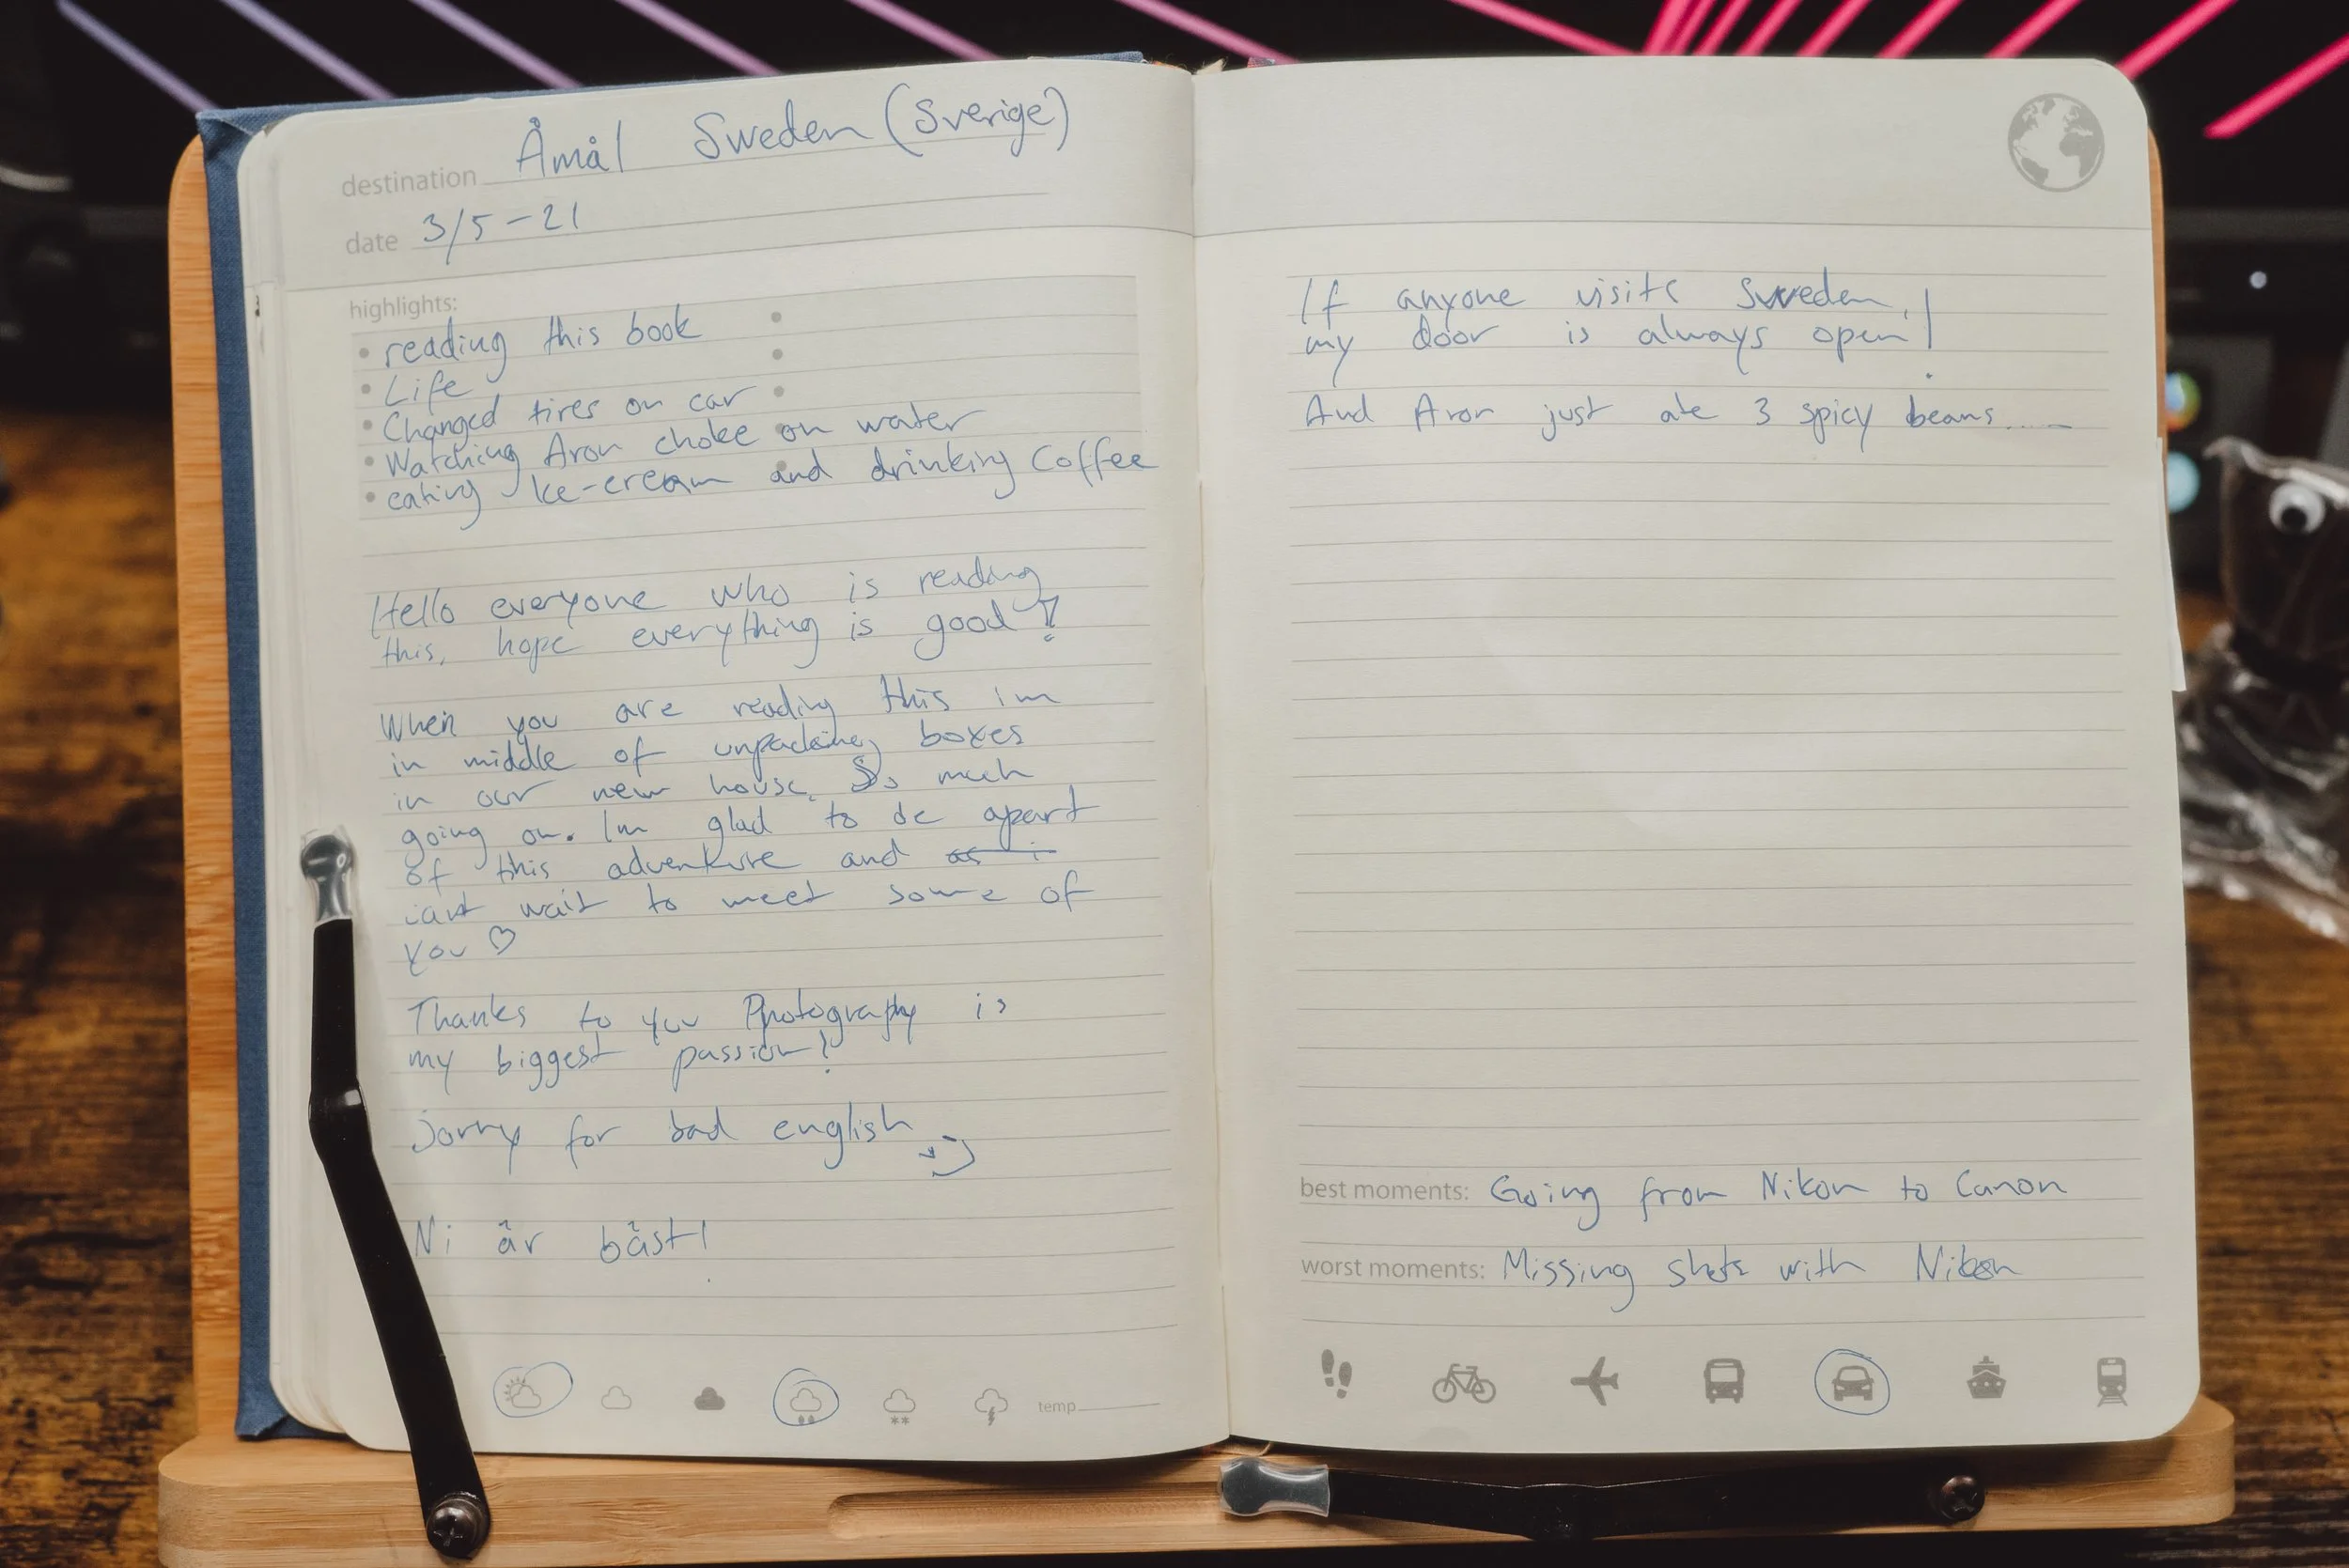 destination Åmål Sweden (Sverige)
date 3/5-21
highlights:
• reading this book
• Life
• Changed tires on car
• Watching Aron choke on water
• eating Ice-cream and drinking Coffee
Hello everyone who is reading
this, hope everything is good!
When you are reading this im
in middle of unpacking boxes
in our new house. So much
going on. Im glad to be apart
of this adventure and as i
cant wait to meet some of
you ♡
Thanks to you Photography is
my biggest passion!
Sorry for bad english :)
Ni är bäst!
temp
If anyone visits Sweden,
my door is always open!
And Aron just ate 3 spicy beans.....
best moments: Going from Nikon to Canon
worst moments: Missing shots with Nikon